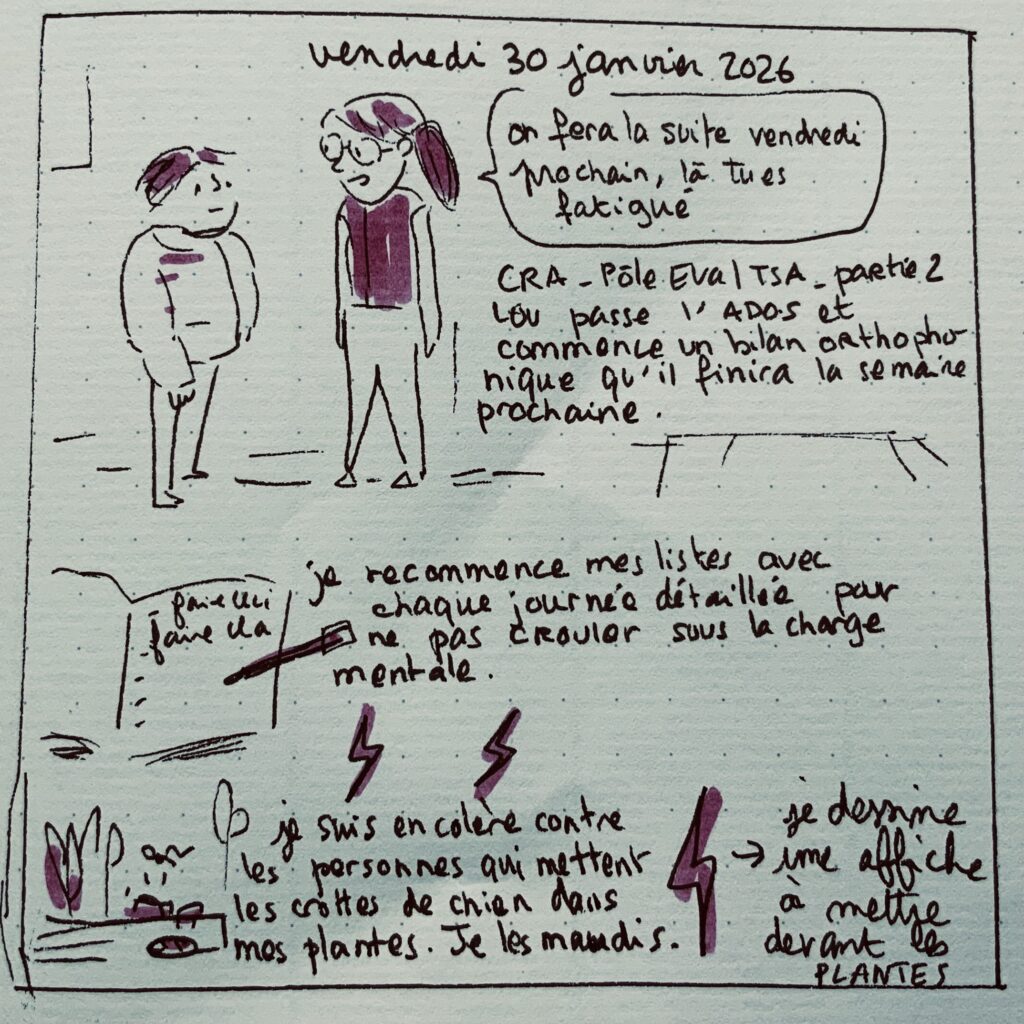 vendredi 30 janvier 2026
on fera la suite vendredi
prochain, là tu es
fatigué
CRA - Pôle Eval TSA - partie 2
Lou passe l'ADOS et
commence un bilan orthopho-
nique qu'il finira la semaine
prochaine.
je recommence mes listes avec
chaque journée détaillée pour
ne pas crouler sous la charge
mentale.
faire ceci
- faire cela
je suis en colère contre
les personnes qui mettent
les crottes de chien dans
mes plantes. Je les maudis.
→ je dessine
une affiche
à mettre
devant les
PLANTES